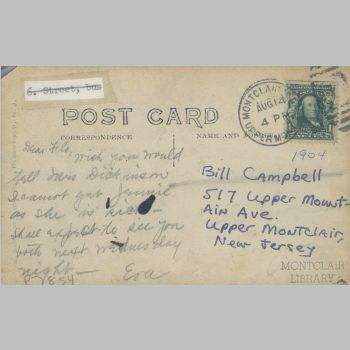 6. Street, bus
POST CARD
CORRESPONDENCE
NAME AND
MONTCLAIR
AUG 14
4 PM
UPPER
1904
Dear Flo,
Wish you would
tell Miss Dickinson
I cannot get Jennie
as she is sick—
Shall expect to see you
both next Wednesday
night— Eva
P 7854
Bill Campbell
517 Upper Mount-
Ain Ave.
Upper Montclair,
New Jersey
MONTCLAIR
LIBRARY